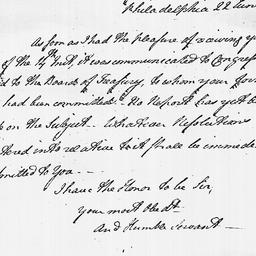 Philadelphia 22 June
As soon as I had the pleasure of receiving yo
of the 17th Inst, it was communicated to Congress
d to the Board of Treasury, to whom your
had been committed. No Report has yet be
on the Subject — Whatever Resolutions
tered into relative to it shall be immed
mitted to You —
I have the Honor to be Sir,
your most Obedt
And Humble Servant —